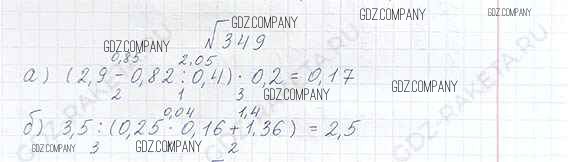 GDZ.COMPANY GDZ.COMPANY
№ 349
GDZ.COMPANY 0,85 2,05 GDZ.COMPANY
а) (2,9 - 0,82 : 0,4) · 0,2 = 0,17
2 1 3 GDZ.COMPANY
0,04 1,4
б) 3,5 : (0,25 · 0,16 + 1,36) = 2,5
GDZ.COMPANY 3 GDZ.COMPANY 2 GDZ.COMPANY
GDZ-RAKETA.RU
GDZ-RAKETA.RU